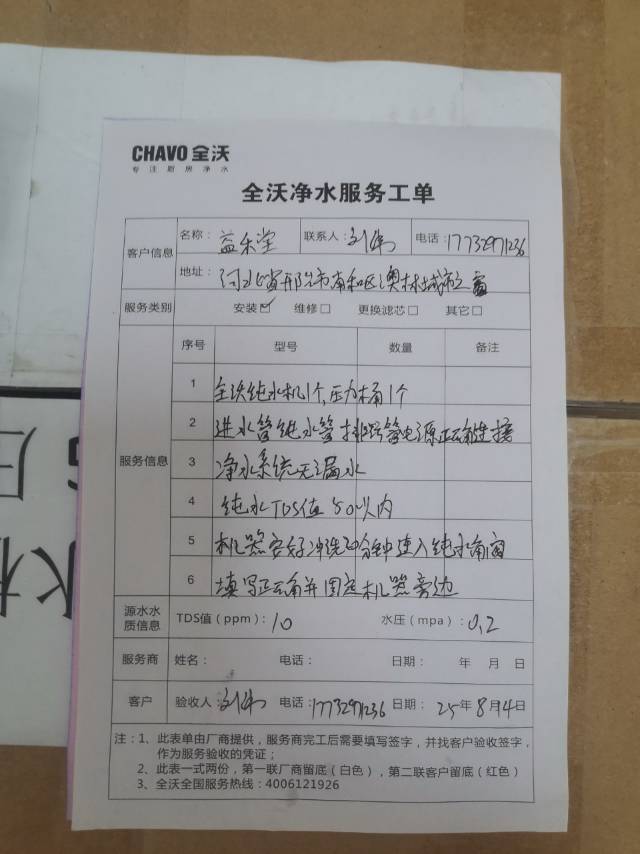 CHAVO 全沃
专注厨房净水
全沃净水服务工单
客户信息 名称：益乐堂 联系人：刘伟 电话：17732971236
地址：河北省邢台市南和区澳林城市之
服务类别 安装☑ 维修□ 更换滤芯□ 其它□
服务信息
序号 型号 数量 备注
1 全沃纯水机1个,压力桶1个
2 进水管纯水管排污管电源正确连接
3 净水系统无漏水
4 纯水TDS值50以内
5 机器安好冲洗20分钟连入纯水角阀
6 填写正确并固定机器旁边
源水水质信息 TDS值（ppm）：10 水压（mpa）：0.2
服务商 姓名： 电话： 日期： 年 月 日
客户 验收人：刘伟 电话：17732971236 日期：25年8月4日
注：1、此表单由厂商提供，服务商完工后需要填写签字，并找客户验收签字，
作为服务验收的凭证；
2、此表一式两份，第一联厂商留底（白色），第二联客户留底（红色）
3、全沃全国服务热线：4006121926